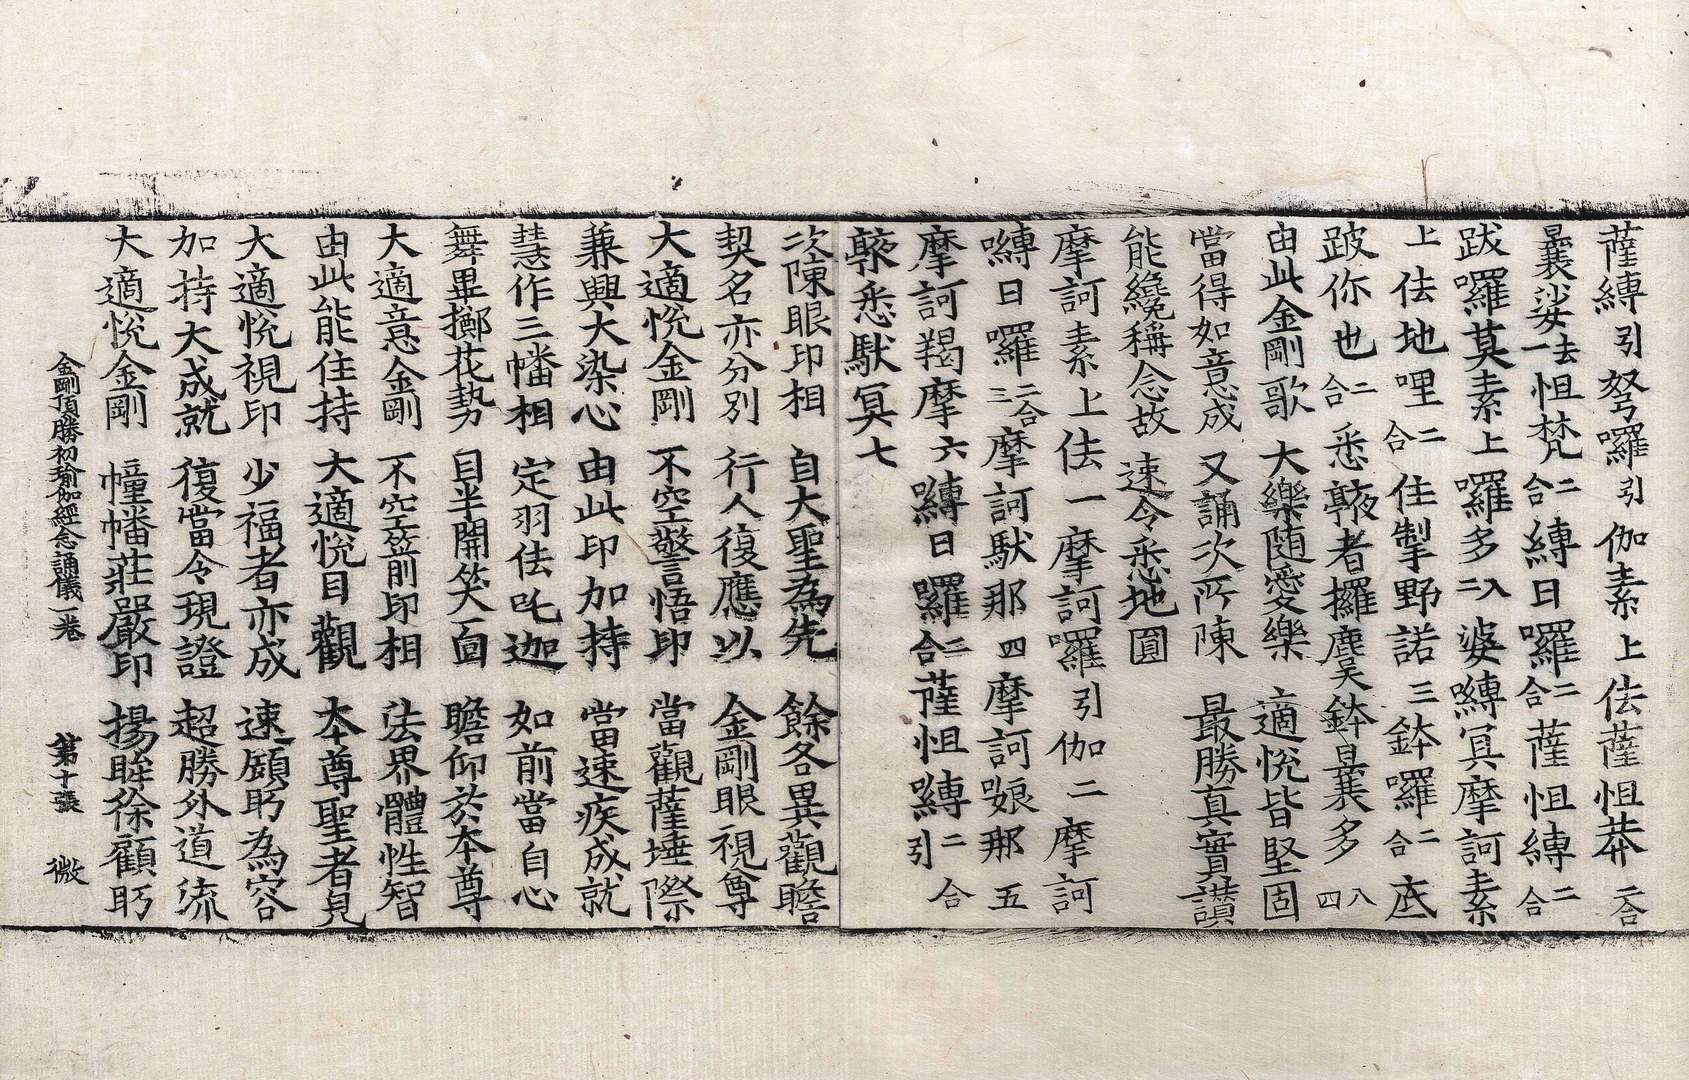 薩嚩引弩囉引伽素上佉薩怛莽二合
曩娑去一怛梵二合嚩日囉二合薩怛嚩二合
跋囉莫素上囉多入二婆嚩冥摩訶素
上佉地哩二合住掣野諾三鉢囉二合底
跛你也二合悉㘑者攞麌鉢曩多八四
由此金剛歌 大樂隨愛樂 適悅皆堅固
當得如意成 又誦次所陳 最勝真實讚
能纔稱念故 速令悉地圓
摩訶素上佉一摩訶囉引伽二摩訶
嚩日囉二合三摩訶馱那四摩訶娘那五
摩訶羯摩六嚩日囉二合薩怛嚩二合引
㘑悉馱冥七
次陳眼印相 自大聖為先 餘各異觀瞻
契名亦分別 行人復應以 金剛眼視尊
大適悅金剛 不空警悟印 當觀薩埵際
兼興大染心 由此印加持 當速疾成就
慧作三幡相 定羽佉吒迦 如前當自心
舞畢擲花勢 目半開笑面 瞻仰於本尊
大適意金剛 不空笠前印相 法界體性智
由此能住持 大適悅目觀 本尊聖者見
大適悅視印 少福者亦成 速顧眄為容
加持大成就 復當令現證 超勝外道流
大適悅金剛 幢幡莊嚴印 揚眸徐顧眄
金剛頂勝初瑜伽經念誦儀一卷 第十張 微